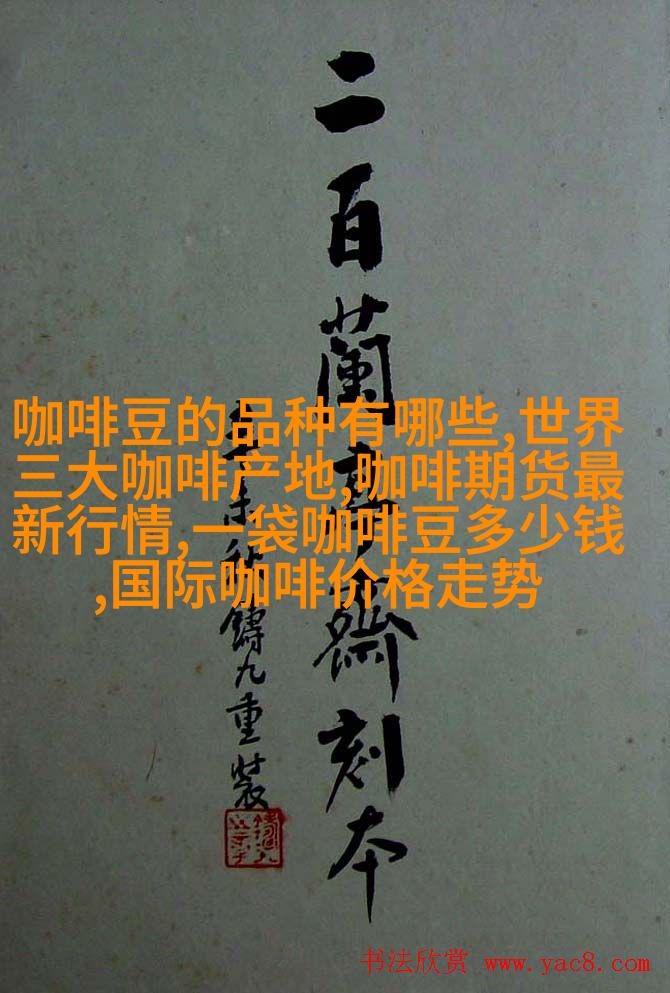 二百蘭亭齋刻本
鑄九重裝
咖啡豆的品种有哪些,世界
三大咖啡产地,咖啡期货最
新行情,一袋咖啡豆多少钱
,国际咖啡价格走势
书法欣赏 www.yac8.com